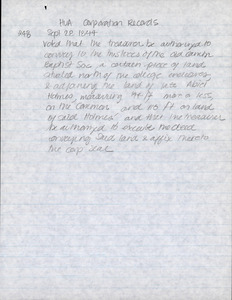 HUA Corporation Records
Sept 28, 1844
Voted that the treasurer be authorized to
convey to the trustees of the Old Cambr.
Baptist Soc. a certain piece of land
situated north of the college enclosure
& adjoining the land of late Abiel
Holmes, measuring ft more or less,
on the Common and 115 ft on land
of said Holmes and that the treasurer
be authorized to execute the deed
conveying said land & affix thereto
the corp seal